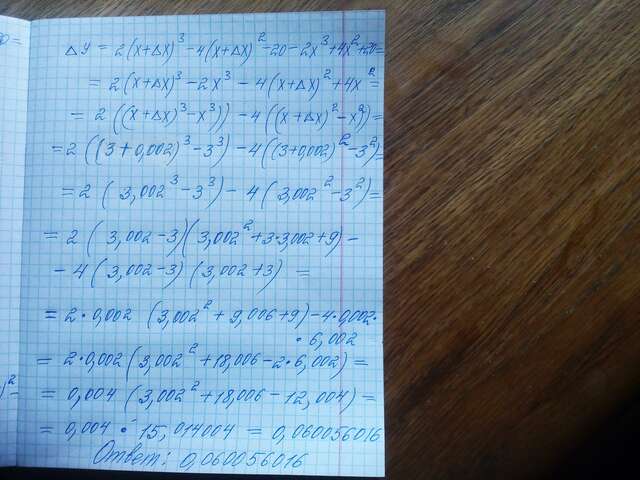 Δy = 2(x+Δx)³-4(x+Δx)²-20-2x³+4x²+20=
= 2(x+Δx)³-2x³-4(x+Δx)²+4x²=
= 2((x+Δx)³-x³))-4((x+Δx)²-x²)=
=2((3+0,002)³-3³)-4((3+0,002)²-3²)=
=2(3,002³-3³)-4(3,002²-3²)=
=2(3,002-3)(3,002²+3·3,002+9)-
-4(3,002-3)(3,002+3) =
=2·0,002 (3,002²+9,006+9)-4·0,002·
·6,002=
=2·0,002(3,002²+18,006-2·6,002)=
=0,004 (3,002²+18,006-12,004)=
=0,004 · 15,014004 = 0,060056016
Ответ: 0,060056016